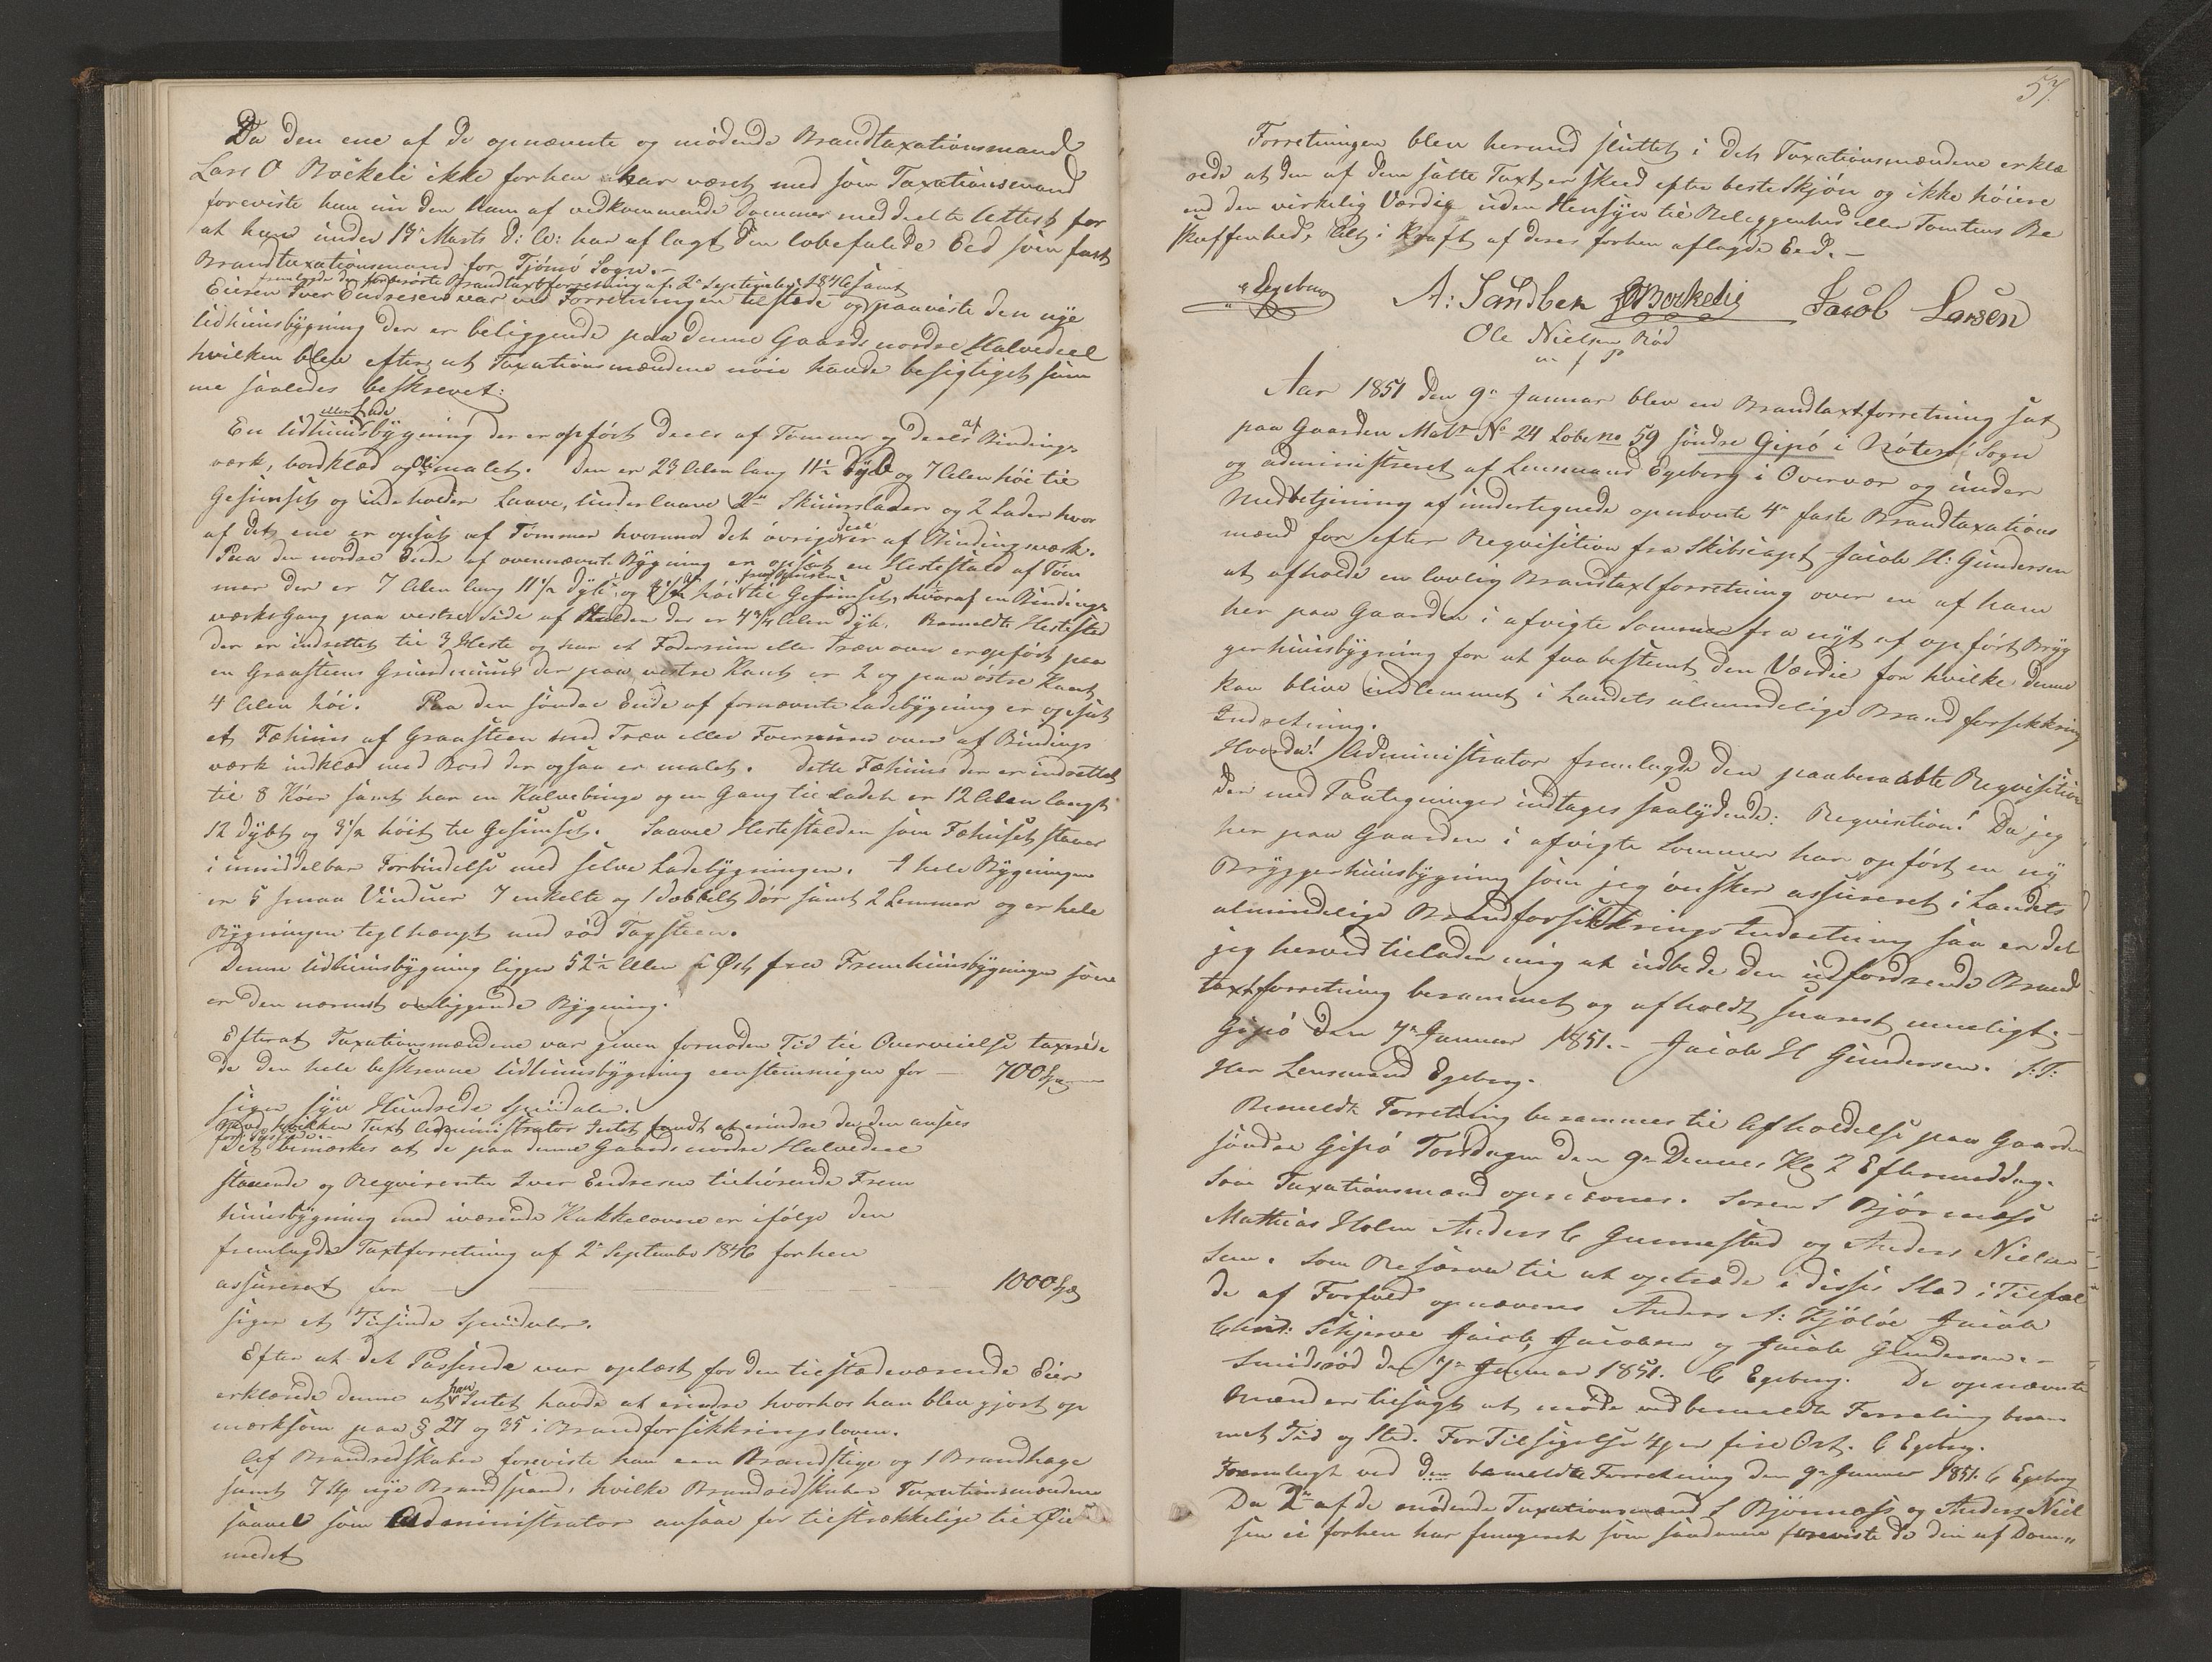 Da den ene af de opnævnte og mødende Brandtaxationsmænd
Lars O Bockeli ikke forhen har været med som Taxationsmand
foreviste han nu den ham af vedkommende Dommer meddeelte Attest for
at han under 1ste Marts d: A: har aflagt den lobefalede Eed som fast
Brandtaxationsmand for Tjømø Sogn.-
fremlagde den forhen passerte Brandtaxtforretning af 2n September 1846 samt
Eieren Iver Endresen var ved Forretningen tilstæde og paaviste den nye
Udhuusbygning der er beliggende paa denne Gaards nordre Halvdeel
hvilken blev efter at Taxationsmændene nøie havde besigtiget sam
me saaledes beskrevet:
eller Lade
En Udhuusbygning der er opført deels af Tømmer og deels af Bindings
værk, bordklæd og Oliemalet. Den er 23 Alen lang 11½ dyb og 7 Alen høi til
Gesimset og indeholder Laave, Underlaave 2de Skuurslader og 2 Lader hvor
af det ene er opsat af Tømmer hvormod det øvrige deel er af Bindingsværk.
Paa den nordre Ende af ovennævnte Bygning er opsat en Hestestald af Tøm
mer der er 7 Alen lang 11½ dyb og 3½ høi til Gesimset, hvoraf en Bindings
værks Gang paa vestre Side af Stalden der er 4¾ Alen dyb. Bemeldte Hestestald
der er indrettet til 3 Heste og har et Foderrum eller Træv over er opført paa
en Graasteens Grundmuur der paa vestre Kant er 2 og paa østre Kant
4 Alen høi. Paa den søndre Ende af fornævnte Ladebygning er opsat
et Fæhuus af Graasteen med Træv eller Foerrum over af Bindings
værk indklæd med Bord der ogsaa er malet. Dette Fæhuus der er indrettet
til 8 Køer samt har en Kalvebinge og en Gang til Ladet er 12 Alen langt
12 dybt og 3½ høit til Gesimset. Saavel Hestestalden som Fæhuset staaer
i umiddelbar Forbindelse med selve Ladebygningen. I hele Bygningen
er 5 smaa Vinduer 7 enkelte og 1 dobbelt Dør samt 2 Lemmer og er hele
Bygningen teglhængt med rød Tagsteen.
Denne Udhuusbygning ligger 52½ Alen i Øst fra Fremhuusbygningen som
er den nærmest omliggende Bygning.
Efterat Taxationsmændene var given fornøden Tid til Overveielse taxere
de den hele beskrevne Udhuusbygning eenstemmigen for — 700 Spd
siger syv Hundrede Speciedaler.
Mod hvilken Taxt Administrator Intet fandt at erindre da den ansees
for passende.
Det bemærkes at de paa denne Gaards nordre Halvdeel
staaende og Reqvirenten Iver Endresen tilhørende Frem
huusbygning med iværende Kakkelovne er ifølge den
fremlagde Taxtforretning af 2n September 1846 forhen
assureret for — — — 1000 Spd
siger et Tusinde Speciedaler.
Efter at det Passerede var oplæst for den tilstædeværende Eier
erklærede denne at han Intet havde at erindre hvorhos han blev gjort op
mærksom paa § 27 og 35 i Brandforsikkringsloven.
Af Brandredskaber foreviste han een Brandstige og 1 Brandhage
samt 7 stp nye Brandspand, hvilke Brandredskaber Taxationsmændene
saavel som Administrator ansaae for tilstrækkelige til Øie
medet
57.
Forretningen blev hermed sluttet i det Taxationsmændene erklæ
rede at den af dem satte Taxt er skeed efter beste Skjøn og ikke høiere
end den virkelig Værdie uden Hensyn til Beliggenhed eller Tomtens Be
skaffenhed, Alt i Kraft af deres forhen aflagde Eed.-
C Egeberg A: Sandbek LOBockelie Jacob Larsen
Ole Nielsen Rød
m f P
Aar 1851 den 9n Januar blev en Brandtaxtforretning sat
paa Gaarden Matr No 24 Løbe no 59 søndre Gipø i Nøterø Sogn
og administreret af Lensmand Egeberg i Overvær og under
Medbetjening af undertegnede opnævnte 4re faste Brandtaxations
mænd for efter Reqvisition fra Skibscapt Jacob H: Gundersen
at afholde en lovlig Brandtaxtforretning over en af ham
her paa Gaarden i afvigte Sommer fra nyt af opført Bryg
gerhuusbygning for at faa bestemt den Værdie for hvilke denne
kan blive indlemmet i Landets almindelige Brandforsikkring
Indretning.
Hvorda! Administrator fremlagde den paaberaabte Reqvisition
der med Paategninger indtages saalydende: Reqvisition! Da jeg
her paa Gaarden i afvigte Sommer har opført en ny
Bryggerhuusbygning som jeg ønsker assureret i Landets
almindelige Brandforsikkrings Indretning saa er det
jeg herved tillader mig at udbede den udfordrende Brand
taxtforretning berammet og afholdt snarest mueligt.-
Gipø den 7n Januar 1851.- Jacob H Gundersen. S:T:
Herr Lensmand Egeberg.
Bemeldte Forretning berammes til Afholdelse paa Gaarden
søndre Gipø Torsdagen den 9n Dennes Kl 2 Eftermiddag.
Som Taxationsmænd opnævnes. Søren S Bjørnæss
Mathias Holm Anders C Gunnestad og Anders Niel
sen. Som Reserve til at optræde i disses Sted i Tilfæl
de af Forfald opnævnes Anders A: Kjølø Jacob
Christ: Schjerve Jacob Jacobsen og Jacob Gundersen.-
Smidsrød den 7n Januar 1851. C Egeberg. De opnævnte
Mænd er tilsagt at møde ved bemeldte Forretning beram
met Tid og Sted. For Tilsigelse 4 er fire Ort. C Egeberg.
Fremlagt ved den bemeldte Forretning den 9n Januar 1851. C Egeberg
Da 2de af de mødende Taxationsmænd S Bjørnæss og Anders Niel
sen ei forhen har fungeret som saadanne foreviste de den af Dom„